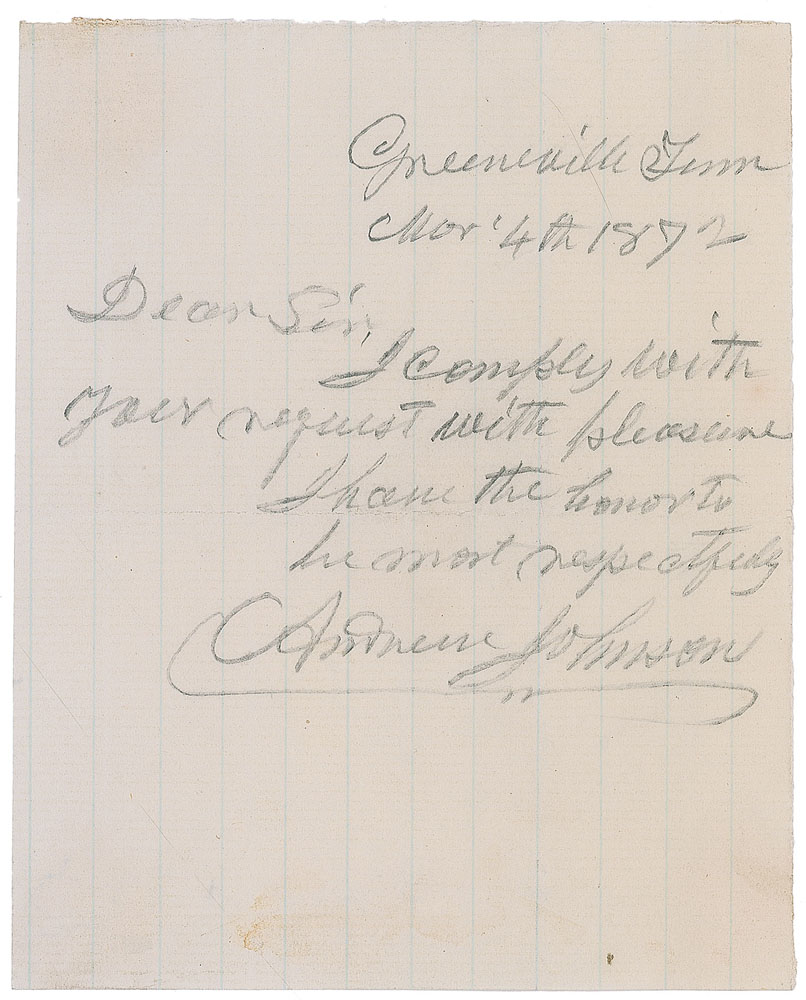 Greeneville Tenn
Mar' 4th 1872
Dear Sir,
I comply with
your request with pleasure
I have the honor to
be most respectfuly
Andrew Johnson